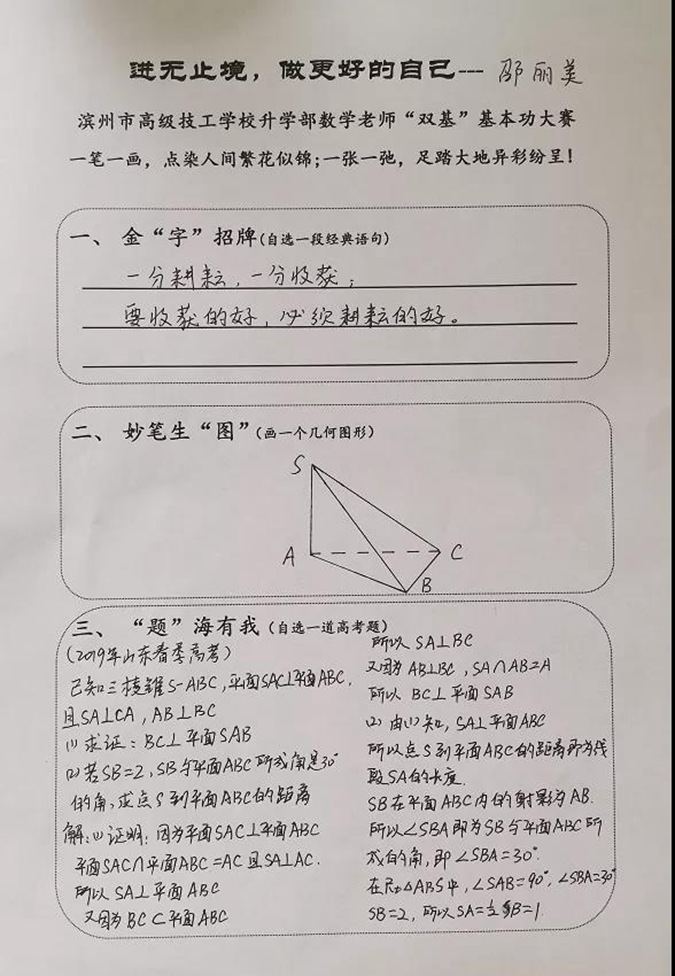 进无止境，做更好的自己--- 邵丽美
滨州市高级技工学校升学部数学老师“双基”基本功大赛
一笔一画，点染人间繁花似锦；一张一弛，足踏大地异彩纷呈！
一、 金“字”招牌(自选一段经典语句)
一分耕耘，一分收获；
要收获的好，必须耕耘的好。
二、 妙笔生“图”(画一个几何图形)
S
A
C
B
三、 “题”海有我（自选一道高考题）
(2019年山东春季高考)
已知三棱锥S-ABC，平面SAC⊥平面ABC，
且SA⊥CA，AB⊥BC
(1) 求证：BC⊥平面SAB
(2) 若SB=2，SB与平面ABC所成角是30°
的角，求点S到平面ABC的距离
解：(1) 证明：因为平面SAC⊥平面ABC
平面SAC∩平面ABC=AC 且SA⊥AC.
所以 SA⊥平面ABC
又因为 BC⊂平面ABC
所以 SA⊥BC
又因为 AB⊥BC，SA∩AB=A
所以 BC⊥平面SAB
(2) 由(1)知，SA⊥平面ABC
所以点S到平面ABC的距离即为线
段SA的长度.
SB在平面ABC内的射影为AB.
所以∠SBA即为SB与平面ABC所
成的角，即∠SBA=30°.
在Rt△ABS中，∠SAB=90°，∠SBA=30°
SB=2，所以SA=½SB=1.